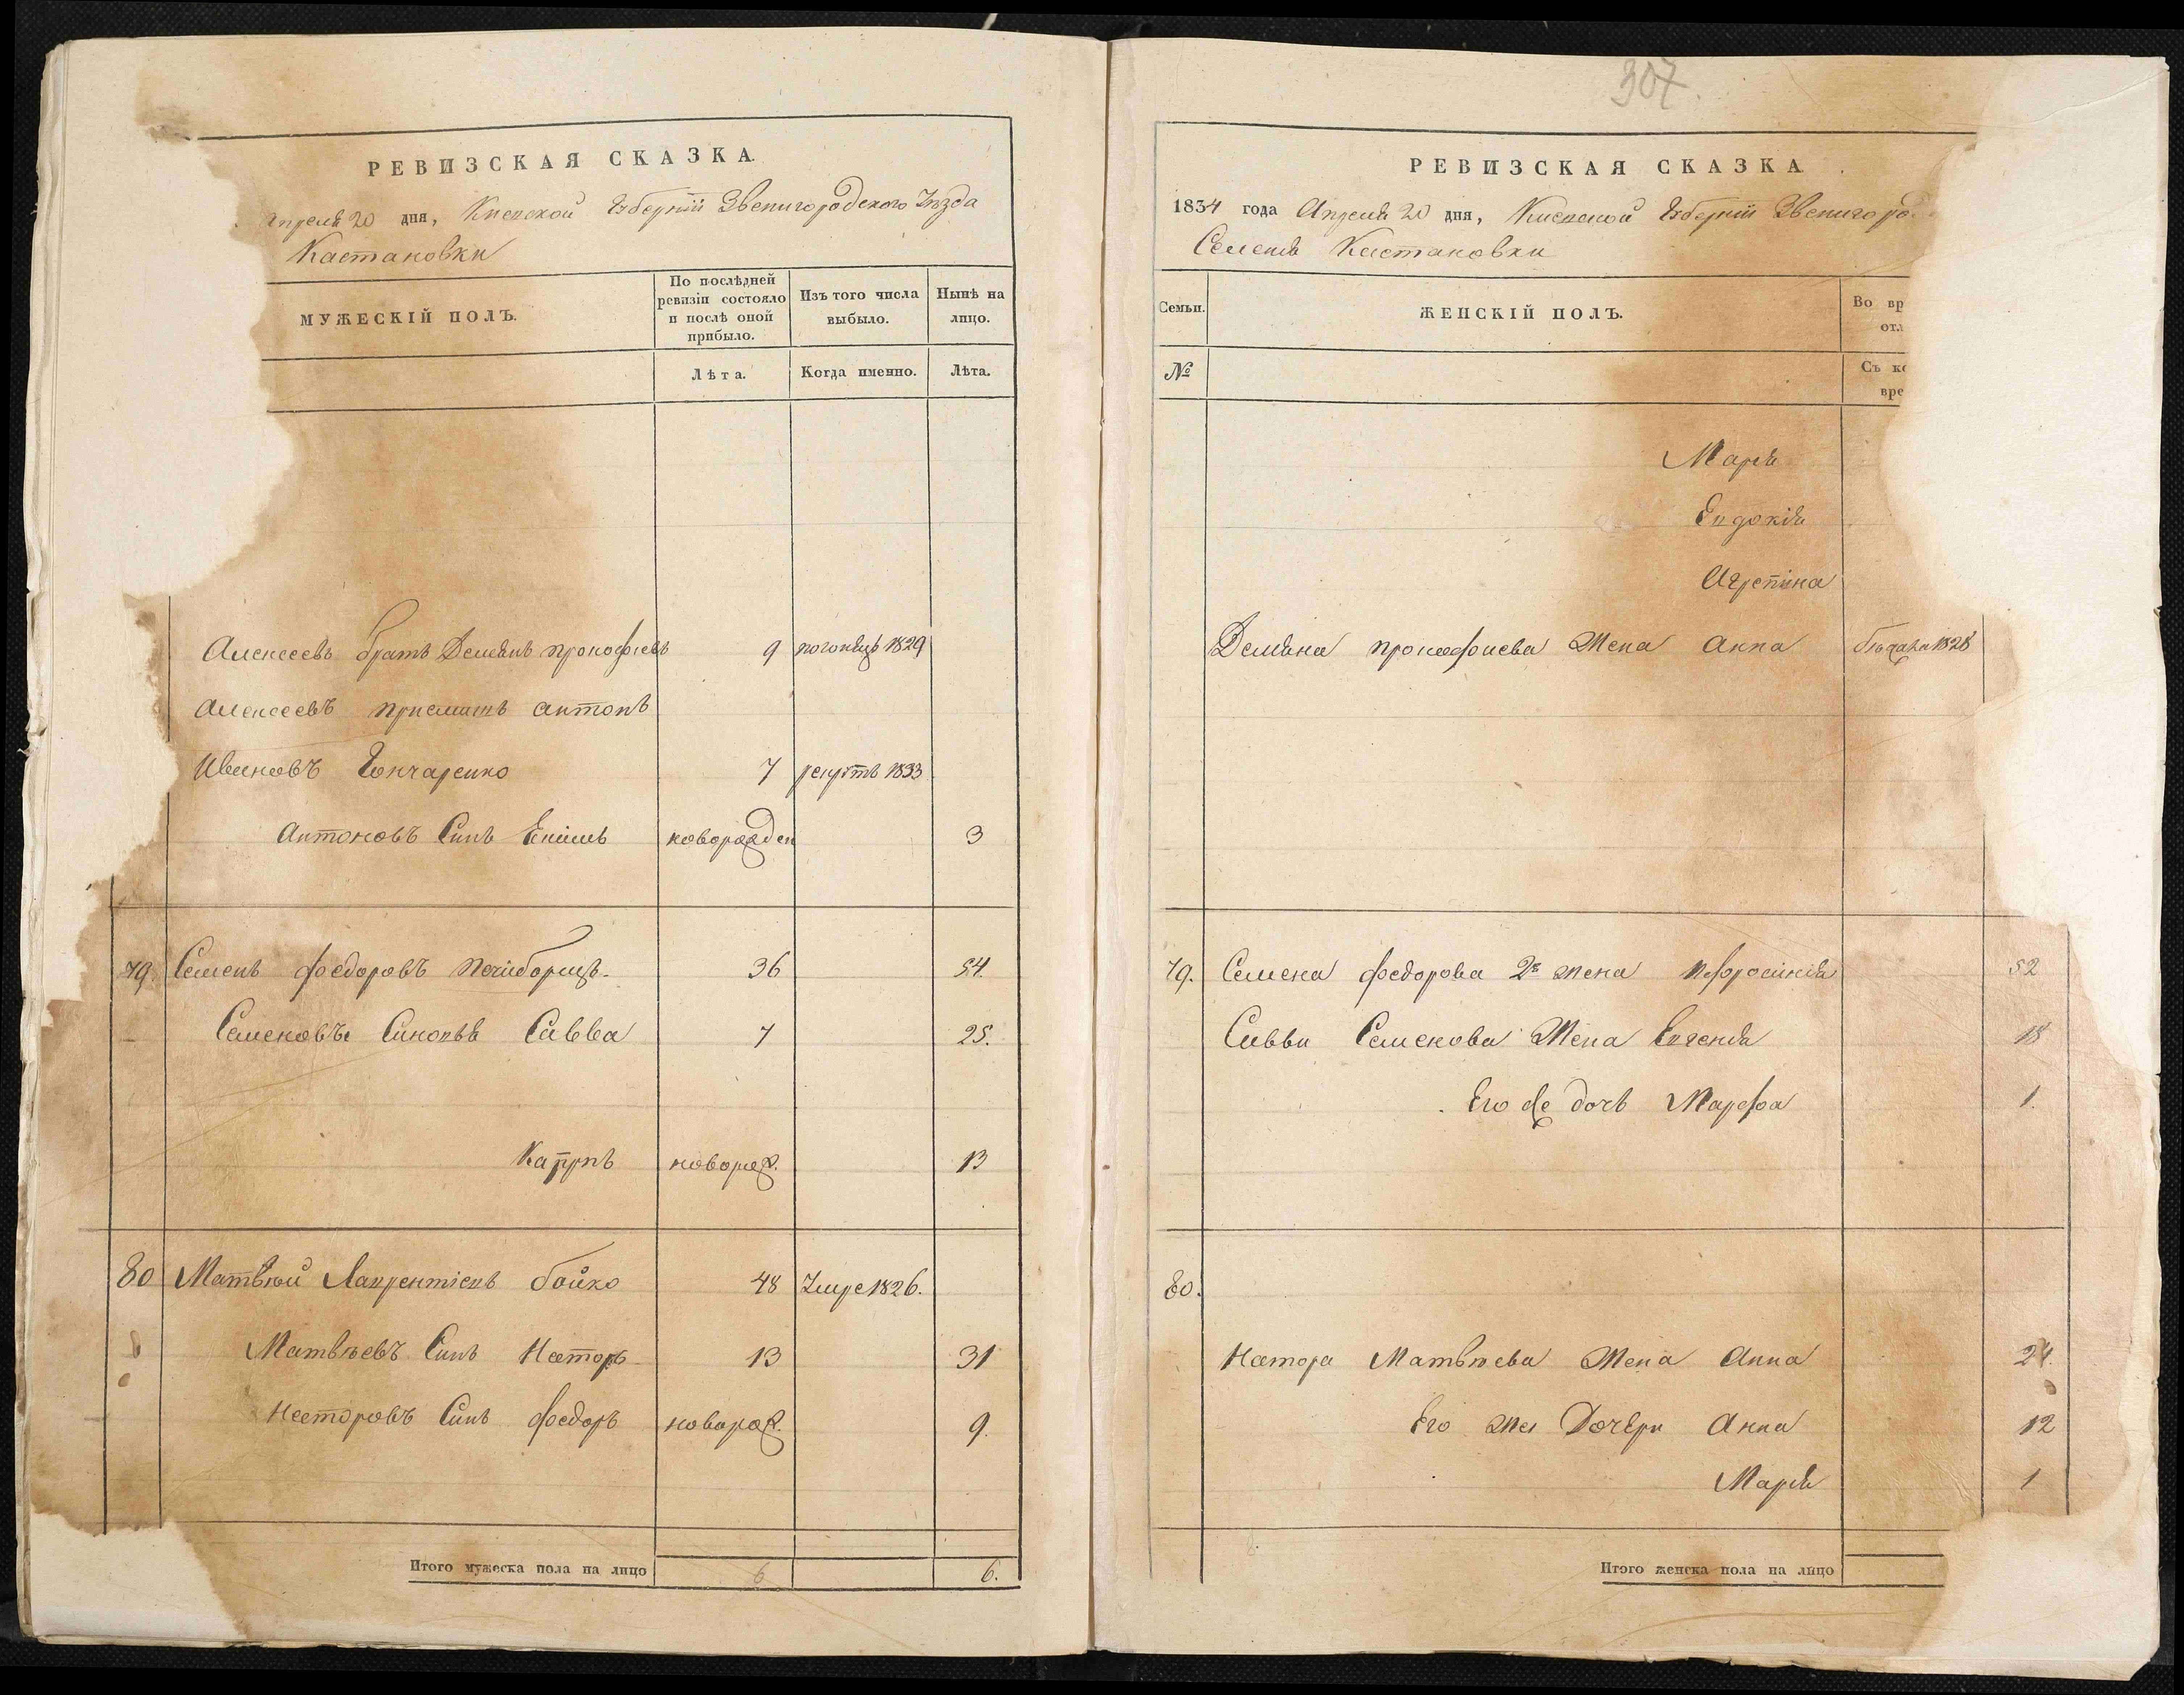 РЕВИЗСКАЯ СКАЗКА.
Апреля 20 дня, Киевской Губернiи Звенигородского Уѣзда
Кастановки
МУЖЕСКIЙ ПОЛЪ.
По послѣдней ревизiи состояло и послѣ оной прибыло.
Изъ того числа выбыло.
Нынѣ на лицо.
Лѣта.
Когда именно.
Лѣта.
Алексеевъ братъ Демянъ Прокофiевъ 9 1829
Алексеевъ Антонъ
Ивановъ Гончаренко 7 рекрутъ 1833
Антоновъ Синъ новорожден 3
79. Семенъ Федоровъ 36 54.
Семеновы Синовья Савва 7 25.
Карпъ новорож. 13
80 Матвѣй Лаврентiевъ Бойко 48 Умре 1826.
Матвѣевъ Синъ Несторъ 13 31
Несторовъ Синъ Федоръ новорож. 9.
Итого мужеска пола на лицо 6 6.
307.
РЕВИЗСКАЯ СКАЗКА
1834 года Апреля 20 дня, Киевской Губернiи Звенигород
Селения Кастановки
Семьи.
ЖЕНСКIЙ ПОЛЪ.
Во вр
отл
№
Съ ко
вре
Марiя
Евдокiя
Агрепина
Демяна Прокофиева Жена Анна 1828
79. Семена Федорова 2я жена 52
Саввы Семенова Жена Евгения 18
Его же дочь Марфа 1.
80.
Нестора Матвѣева Жена Анна 24.
Его же Дочери Анна 12
Марiя 1
Итого женска пола на лицо